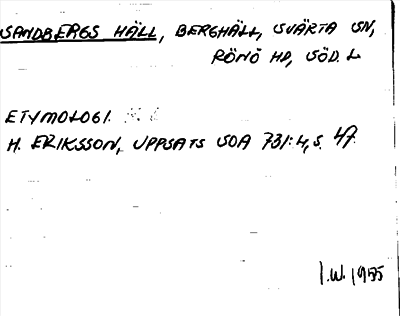 SANDBERGS HÄLL, BERGHÄLL, SVÄRTA SN,
RÖNÖ HD, SÖD. L
ETYMOLOGI.
H. ERIKSSON, UPPSATS SOA 731:4, S. 47.
I.W. 1955